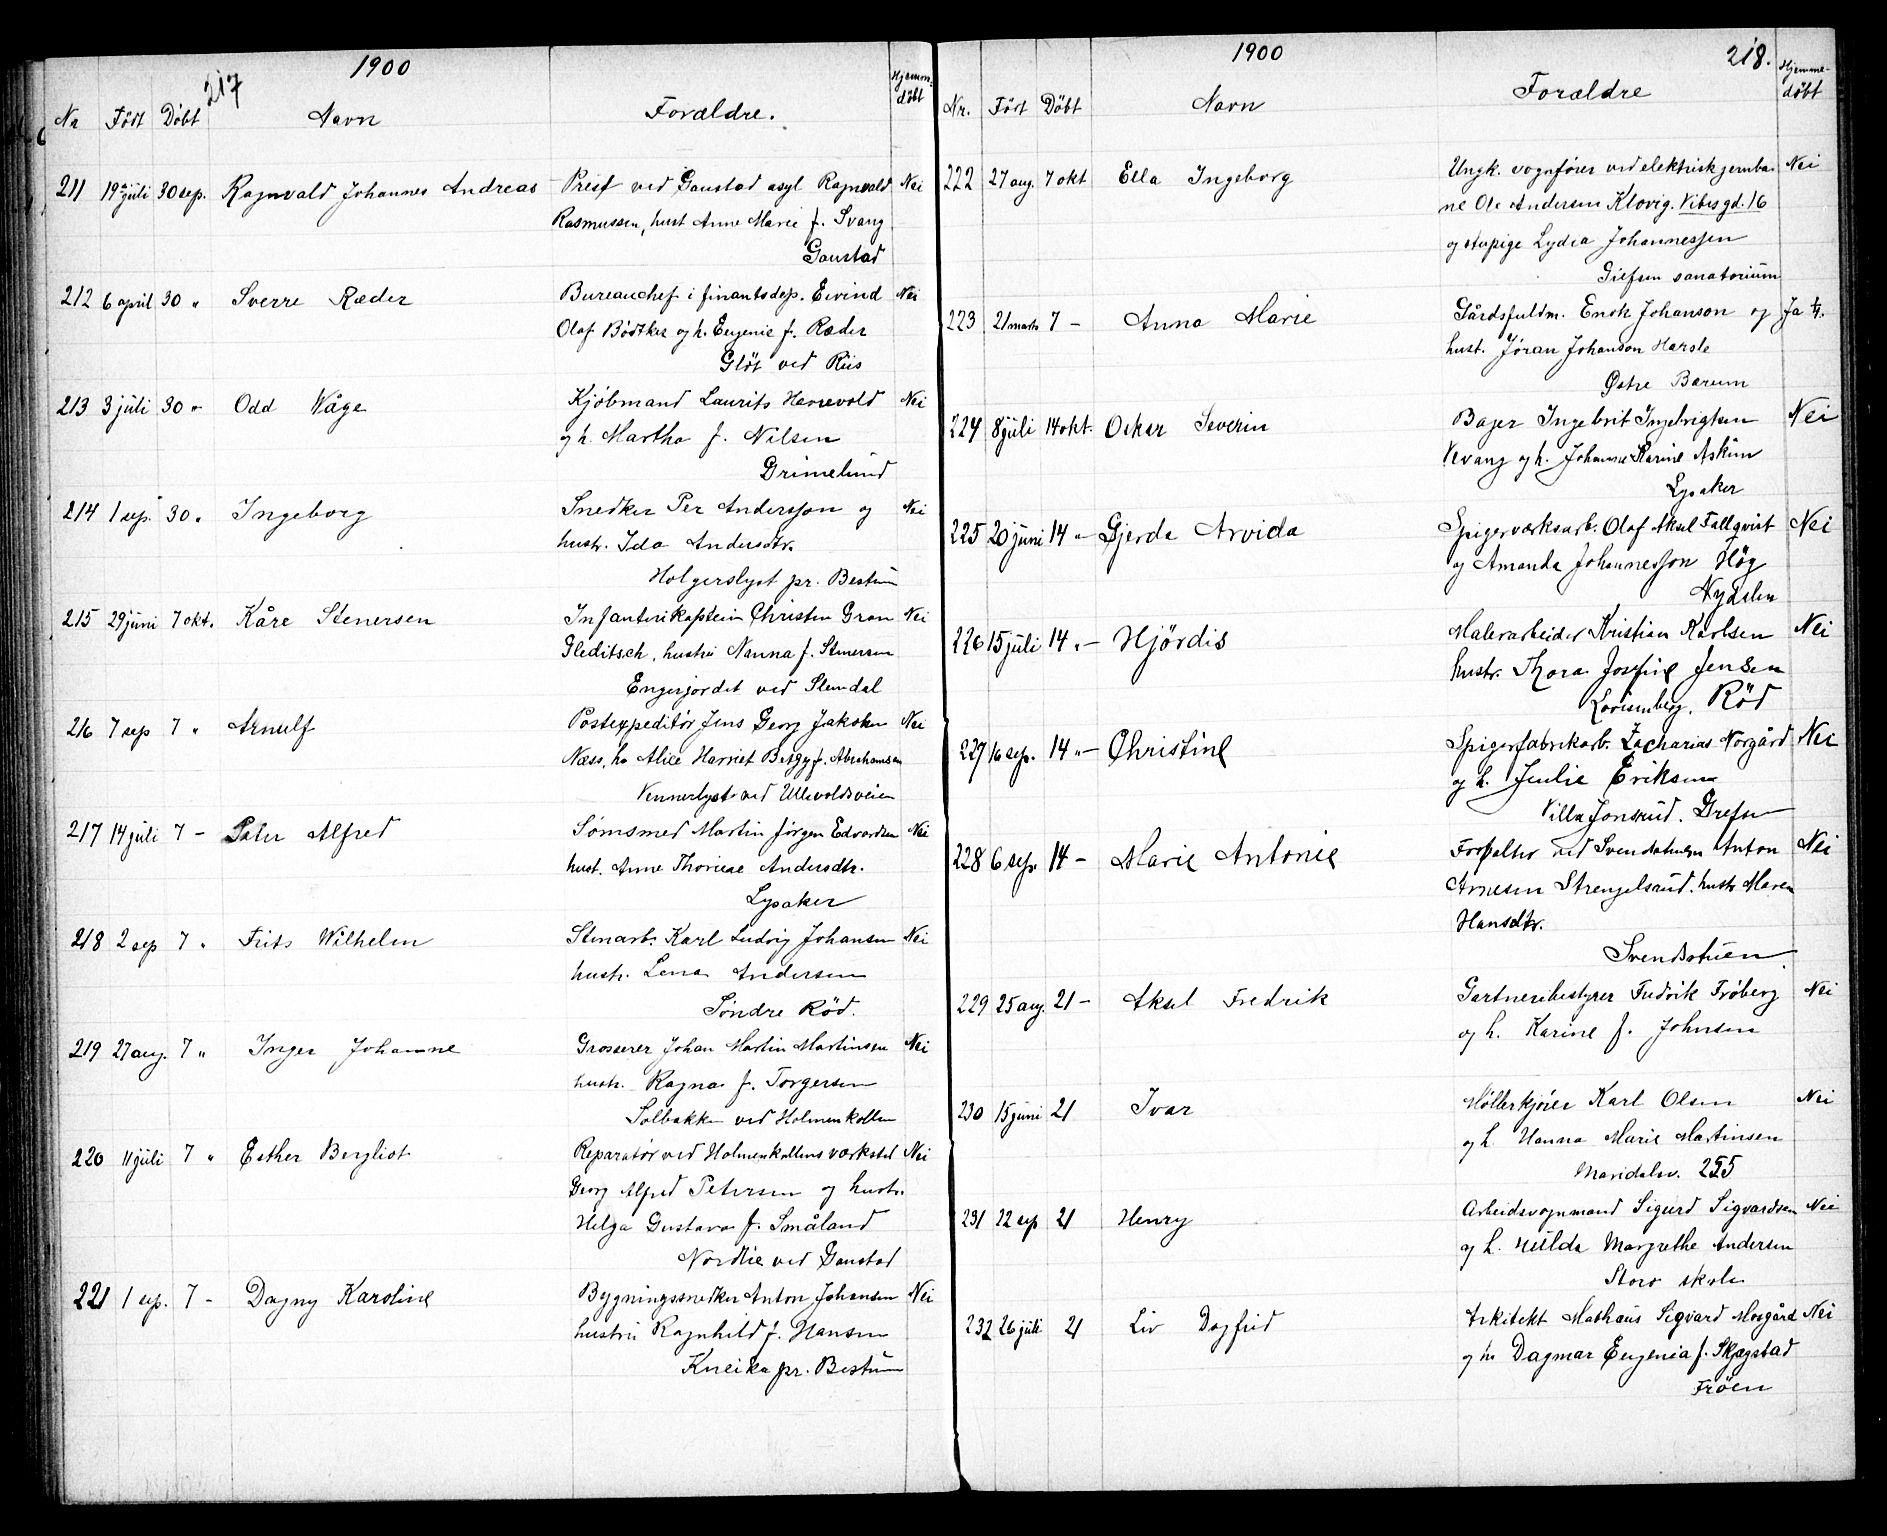 1900
217
Nr Født Døbt Navn Forældre. Hjemmedøbt
211 19 juli 30 sep. Ragnvald Johannes Andreas Præst ved Gaustad asyl Ragnvald Nei
Rasmussen, hust Anne Marie f. Svang
Gaustad
212 6 april 30 " Sverre Ræder Bureauchef i finantsdep. Eivind Nei
Olaf Bødtker og h. Eugenie f. Ræder
Gløt ved Riis
213 3 juli 30 " Odd Våge Kjøbmand Laurits Hanevold Nei
og h. Martha f. Nilsen
Grimelund
214 1 sep. 30 " Ingeborg Snedker Per Andersson og Nei
hustr. Ida Andersdtr.
Holgerslyst pr. Bestum
215 29 juni 7 okt. Kåre Stenersen Infanterikaptein Christen Gran Nei
Gleditsch, hustru Nanna f. Stenersen
Engerjordet ved Slemdal
216 7 sep 7 " Arnulf Postexpeditør Jens Georg Jakobsen Nei
Næss, h. Alice Harriet Betzy f. Abrahamsen
Vennerlyst ved Ullevoldsveien
217 14 juli 7 - Peter Alfred Sømsmed Martin Jørgen Edvardsen Nei
hust. Anne Thorine Andersdtr.
Lysaker
218 2 sep 7 " Frits Wilhelm Stenarb. Karl Ludvig Johansen Nei
hustr. Lena Andersen
Søndre Rød.
219 27 aug. 7 " Inger Johanne Grosserer Johan Martin Martinsen Nei
hustr. Ragna f. Torgersen
Solbakken ved Holmenkollen
220 11 juli 7 " Esther Bergliot Reparatør ved Holmenkollens værksted Nei
Georg Alfred Petersen og hustr.
Helga Gustava f. Småland
Nordlie ved Gaustad
221 1 sep. 7 - Dagny Karoline Bygningssnedker Anton Johansen Nei
hustru Ragnhild f. Hansen
Kneika pr. Bestum
1900
218.
Nr. Født Døbt Navn Forældre Hjemmedøbt
222 27 aug. 7 okt Ella Ingeborg Ungk. vognfører ved elektrisk jernba- Nei
ne Ole Andersen Klovig. Vibes gd. 16
og stupige Lydia Johannessen
Grefsen sanatorium
223 21 marts 7 - Anna Marie Gårdsfuldm. Enok Johanson og Ja
hust. Jøran Johanson Harsle
Østre Bærum
224 8 juli 14 okt. Oskar Severin Bager Ingebrit Ingebrigtsen Nei
Vevang og h. Johanne Karine Askim
Lysaker
225 20 juni 14 " Gjerda Arvida Spigerværksarb. Olaf Aksel Fallqvist Nei
og Amanda Johannesson Høg
Nydalen
226 15 juli 14 " - Hjørdis Malerarbeider Kristian Karlsen Nei
hustr. Thora Josefine Jensen
Lovisenberg. Rød
227 16 sep. 14 " - Christine Spigerfabrikarb. Zacharias Norgård Nei
og h. Julie Eriksen
Villa Jonsrud. Grefsen
228 6 sep 14 - Marie Antonie Forpakter ved Svendstuen Anton Nei
Arnesen Strengelsrud. hustr Maren
Hansdtr.
Svendstuen
229 25 aug. 21 - Aksel Fredrik Gartneribestyrer Fredrik Frøberg Nei
og h. Karine f. Johnsen
230 15 juni 21 Ivar Møllerkjører Karl Olsen Nei
og h. Hanna Marie Martinsen
Maridalsv. 255
231 22 sep 21 Henry Arbeidsvognmand Sigurd Sigvardsen Nei
og h. Hilda Margrethe Andersen
Storo skole
232 26 juli 21 Liv Dagfrid Arkitekt Mathæus Sigvard Morgård Nei
og h. Dagmar Eugenia f. Skjegstad
Frøen